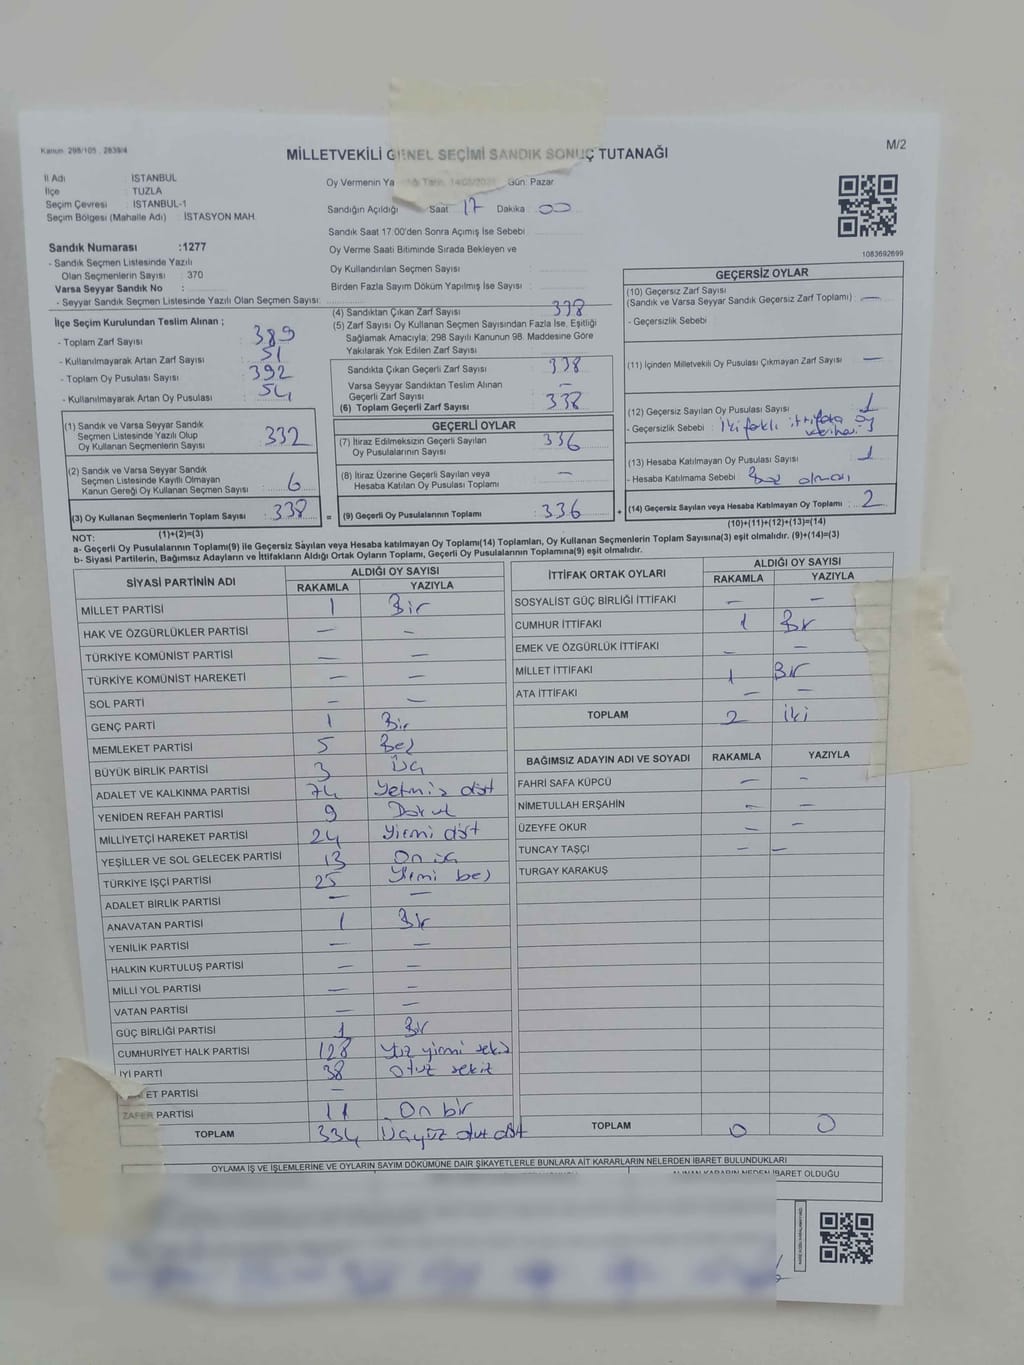 Kanun: 298/105, 2839/4
M/2
MİLLETVEKİLİ GENEL SEÇİMİ SANDIK SONUÇ TUTANAĞI
İl Adı : İSTANBUL
İlçe : TUZLA
Seçim Çevresi : İSTANBUL-1
Seçim Bölgesi (Mahalle Adı) : İSTASYON MAH.
Sandık Numarası :1277
- Sandık Seçmen Listesinde Yazılı
Olan Seçmenlerin Sayısı : 370
Varsa Seyyar Sandık No :
- Seyyar Sandık Seçmen Listesinde Yazılı Olan Seçmen Sayısı:
Oy Vermenin Ya Gün: Pazar
Sandığın Açıldığı Saat 17 Dakika 00
Sandık Saat 17:00'den Sonra Açımış İse Sebebi
Oy Verme Saati Bitiminde Sırada Bekleyen ve
Oy Kullandırılan Seçmen Sayısı
Birden Fazla Sayım Döküm Yapılmış İse Sayısı :
1083692699
İlçe Seçim Kurulundan Teslim Alınan ;
- Toplam Zarf Sayısı : 389
- Kullanılmayarak Artan Zarf Sayısı : 51
- Toplam Oy Pusulası Sayısı : 392
- Kullanılmayarak Artan Oy Pusulası : 54
(1) Sandık ve Varsa Seyyar Sandık
Seçmen Listesinde Yazılı Olup
Oy Kullanan Seçmenlerin Sayısı : 332
(2) Sandık ve Varsa Seyyar Sandık
Seçmen Listesinde Kayıtlı Olmayan
Kanun Gereği Oy Kullanan Seçmen Sayısı : 6
(3) Oy Kullanan Seçmenlerin Toplam Sayısı : 338
(1)+(2)=(3)
(4) Sandıktan Çıkan Zarf Sayısı 338
(5) Zarf Sayısı Oy Kullanan Seçmen Sayısından Fazla İse, Eşitliği
Sağlamak Amacıyla; 298 Sayılı Kanunun 98. Maddesine Göre
Yakılarak Yok Edilen Zarf Sayısı
Sandıkta Çıkan Geçerli Zarf Sayısı 338
Varsa Seyyar Sandıktan Teslim Alınan
Geçerli Zarf Sayısı –
(6) Toplam Geçerli Zarf Sayısı 338
GEÇERLİ OYLAR
(7) İtiraz Edilmeksizin Geçerli Sayılan
Oy Pusulalarının Sayısı 336
(8) İtiraz Üzerine Geçerli Sayılan veya
Hesaba Katılan Oy Pusulası Toplamı –
= (9) Geçerli Oy Pusulalarının Toplamı 336 +
GEÇERSİZ OYLAR
(10) Geçersiz Zarf Sayısı
(Sandık ve Varsa Seyyar Sandık Geçersiz Zarf Toplamı) : –
- Geçersizlik Sebebi :
(11) İçinden Milletvekili Oy Pusulası Çıkmayan Zarf Sayısı –
(12) Geçersiz Sayılan Oy Pusulası Sayısı : 1
- Geçersizlik Sebebi : İki farklı ittifaka oy
(13) Hesaba Katılmayan Oy Pusulası Sayısı : 1
- Hesaba Katılmama Sebebi : Boş olması
(14) Geçersiz Sayılan veya Hesaba Katılmayan Oy Toplamı : 2
(10)+(11)+(12)+(13)=(14)
NOT:
a- Geçerli Oy Pusulalarının Toplamı(9) ile Geçersiz Sayılan veya Hesaba katılmayan Oy Toplamı(14) Toplamları, Oy Kullanan Seçmenlerin Toplam Sayısına(3) eşit olmalıdır. (9)+(14)=(3)
b- Siyasi Partilerin, Bağımsız Adayların ve İttifakların Aldığı Ortak Oyların Toplamı, Geçerli Oy Pusulalarının Toplamına(9) eşit olmalıdır.
SİYASİ PARTİNİN ADI ALDIĞI OY SAYISI
RAKAMLA YAZIYLA
MİLLET PARTİSİ 1 Bir
HAK VE ÖZGÜRLÜKLER PARTİSİ – –
TÜRKİYE KOMÜNİST PARTİSİ – –
TÜRKİYE KOMÜNİST HAREKETİ – –
SOL PARTİ – –
GENÇ PARTİ 1 Bir
MEMLEKET PARTİSİ 5 Beş
BÜYÜK BİRLİK PARTİSİ 3 Üç
ADALET VE KALKINMA PARTİSİ 74 Yetmiş dört
YENİDEN REFAH PARTİSİ 9 Dokuz
MİLLİYETÇİ HAREKET PARTİSİ 24 Yirmi dört
YEŞİLLER VE SOL GELECEK PARTİSİ 13 On üç
TÜRKİYE İŞÇİ PARTİSİ 25 Yirmi beş
ADALET BİRLİK PARTİSİ – –
ANAVATAN PARTİSİ 1 Bir
YENİLİK PARTİSİ – –
HALKIN KURTULUŞ PARTİSİ – –
MİLLİ YOL PARTİSİ – –
VATAN PARTİSİ – –
GÜÇ BİRLİĞİ PARTİSİ 1 Bir
CUMHURİYET HALK PARTİSİ 128 Yüz yirmi sekiz
İYİ PARTİ 38 Otuz sekiz
ET PARTİSİ –
ZAFER PARTİSİ 11 On bir
TOPLAM 334 Üçyüz otuz dört
İTTİFAK ORTAK OYLARI ALDIĞI OY SAYISI
RAKAMLA YAZIYLA
SOSYALİST GÜÇ BİRLİĞİ İTTİFAKI – –
CUMHUR İTTİFAKI 1 Bir
EMEK VE ÖZGÜRLÜK İTTİFAKI – –
MİLLET İTTİFAKI 1 Bir
ATA İTTİFAKI – –
TOPLAM 2 iki
BAĞIMSIZ ADAYIN ADI VE SOYADI RAKAMLA YAZIYLA
FAHRİ SAFA KÜPCÜ – –
NİMETULLAH ERŞAHİN – –
ÜZEYFE OKUR – –
TUNCAY TAŞÇI – –
TURGAY KARAKUŞ
TOPLAM 0 0
OYLAMA İŞ VE İŞLEMLERİNE VE OYLARIN SAYIM DÖKÜMÜNE DAİR ŞİKAYETLERLE BUNLARA AİT KARARLARIN NELERDEN İBARET BULUNDUKLARI
ALINAN KARARIN NEDEN İBARET OLDUĞU